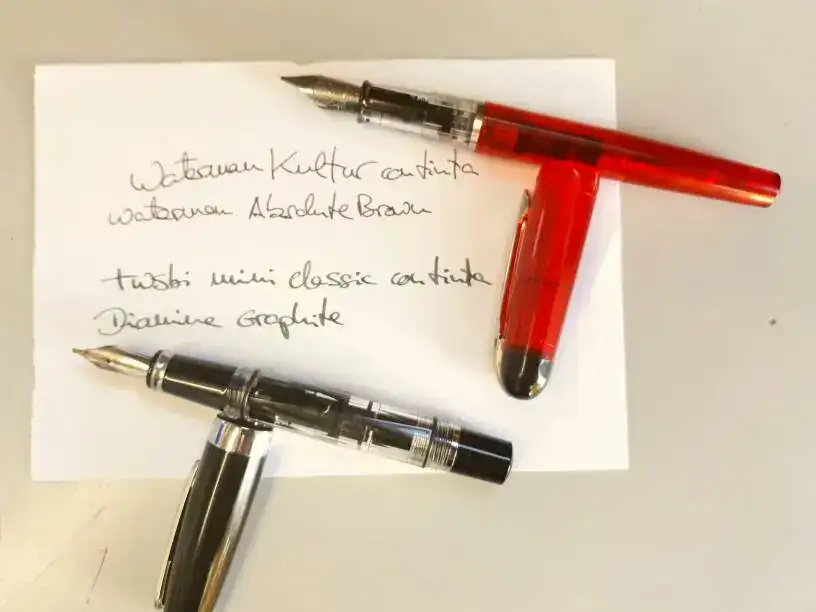 Waterman Kultur con tinta
waterman Absolute Brown
twsbi mini classic con tinta
Diamine Graphite